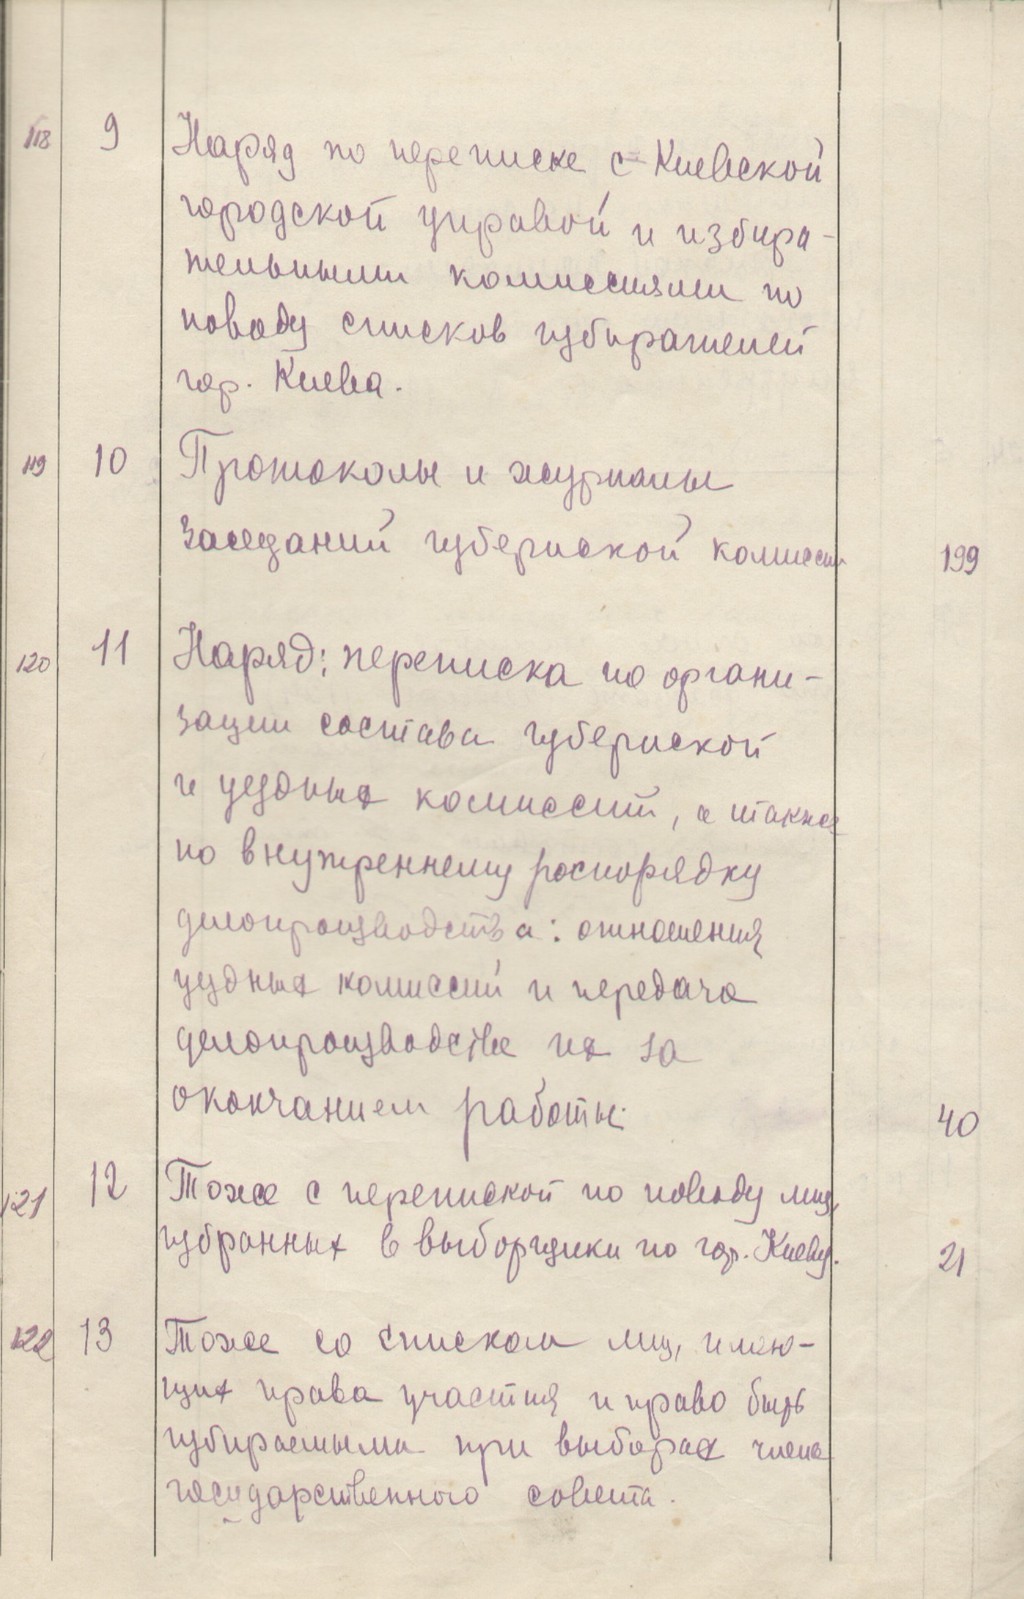 118 9 Наряд по переписке с Киевской
городской управой и избира-
тельными комиссиями по
поводу списков избирателей
гор. Киева.
119 10 Протоколы и журналы
заседаний губернской комиссии 199
120 11 Наряд: переписка по органи-
зации состава губернской
и уездных комиссий, а также
по внутреннему роспорядку
делопроизводства: отношения
уездных комиссий и передача
делопроизводства их за
окончанием работы. 40
121 12 Тоже с перепиской по поводу лиц,
избранных в выборщики по гор. Киеву. 21
122 13 Тоже со списком лиц, имею-
щих права участия и право быть
избираемыми при выборах члена
государственного совета.